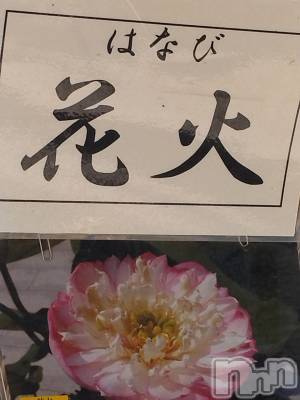 はなび
花火